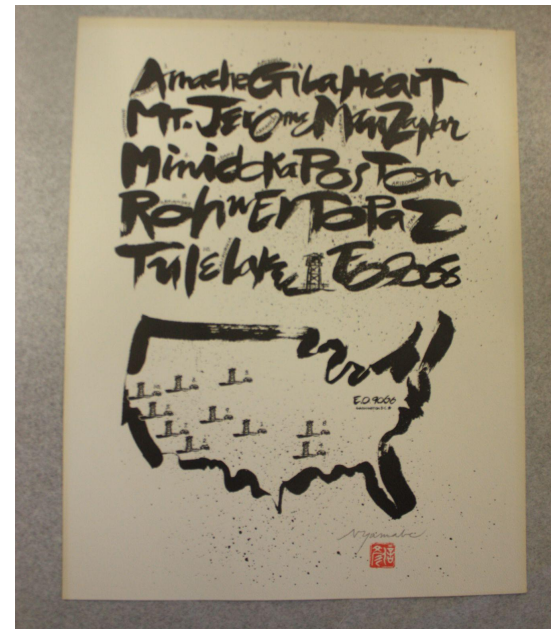 Amache Gila Heart
Mt. Jerome Manzanar
Minidoka Poston
Rohwer Topaz
Tule Lake EO9066
E.O. 9066